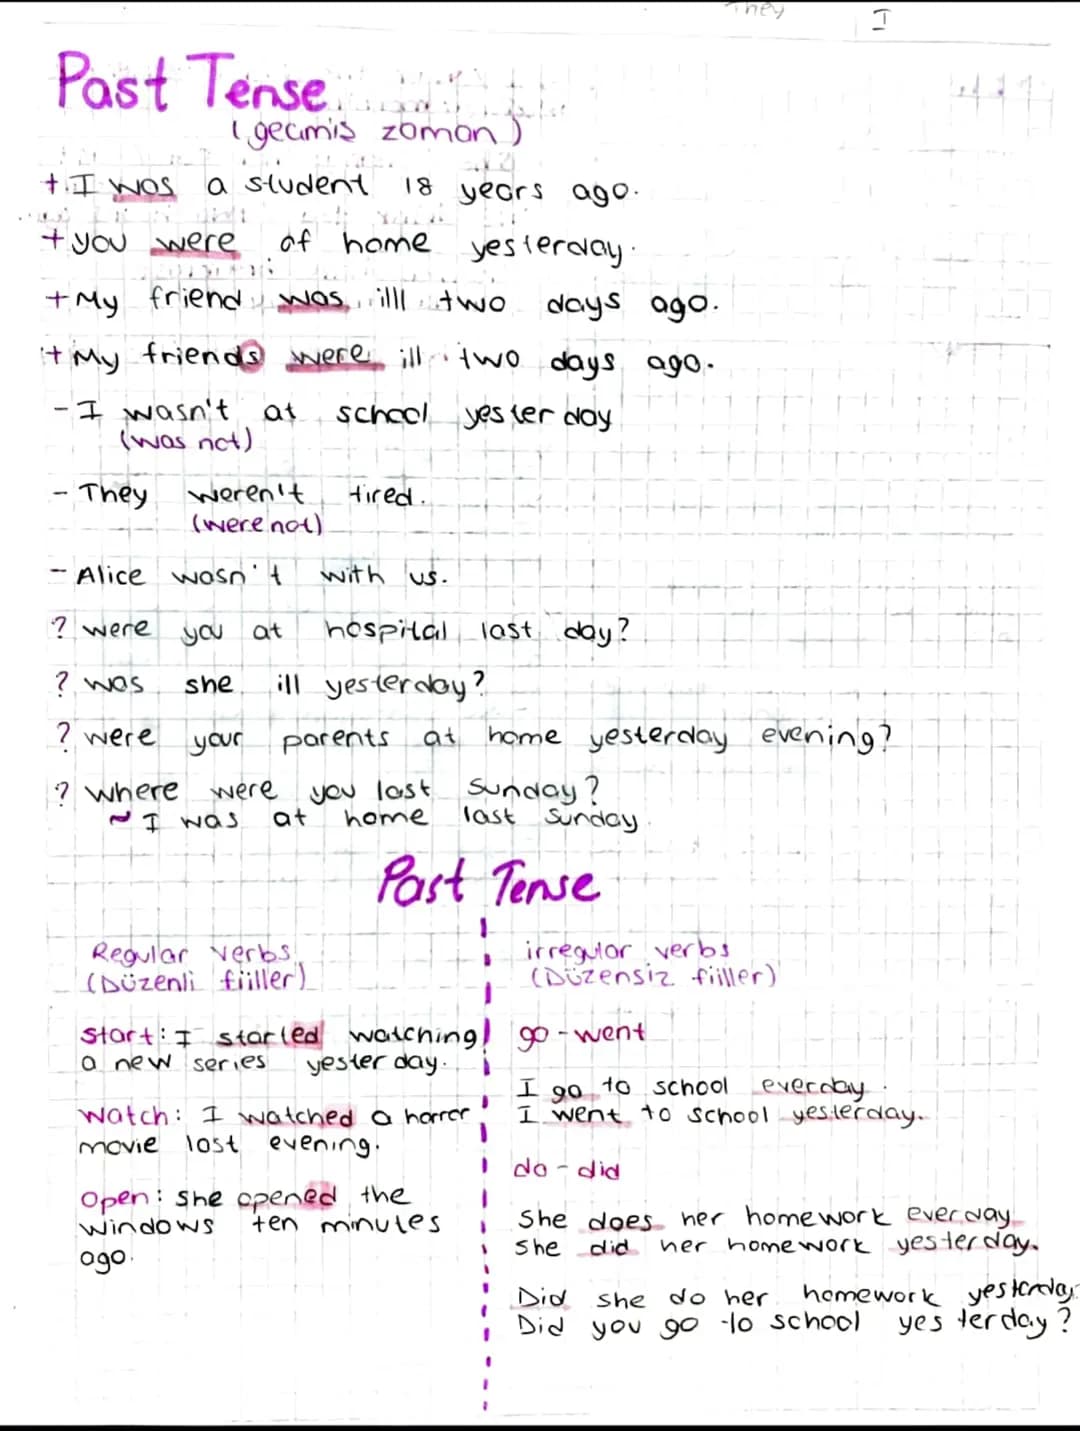 They I
Past Tense
(geçmis zaman)
+ I was a student 18 years ago.
+ you were at home yesterday.
+ My friend was illl two days ago.
+ My friends were ill two days ago.
- I wasn't at school yesterday
(was not)
- They weren't tired.
(were not)
- Alice wasn't with us.
? were you at hospital last day?
? was she ill yesterday?
? were your parents at home yesterday evening?
? where were you last Sunday?
~ I was at home last Sunday
Past Tense
Regular verbs
(Düzenli fiiller)
start: I started watching
a new series yesterday.
watch: I watched a horror
movie last evening.
open: she opened the
windows ten minutes
ago.
irregular verbs
(Düzensiz fiiller)
go - went
I go to school everday.
I went to school yesterday.
do - did
She does her homework everday
She did her homework yesterday.
Did she do her homework yesterday
Did you go to school yesterday?